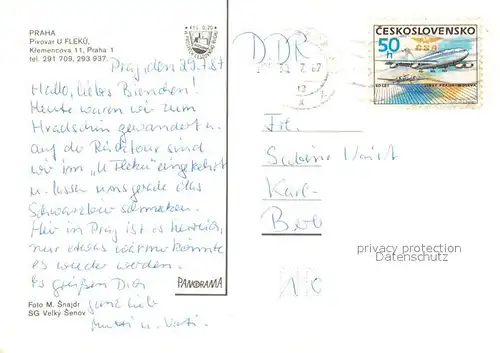 PRAHA
Pivovar U FLEKŮ,
Křemencova 11, Praha 1
tel. 291 709, 293 937.
Kčs 0,70
Prag, den 29.7.87
Hallo, liebes Bienchen!
Heute waren wir zum
Hradschin gewandert u.
auf der Rücktour sind
wir im „U Fleku" eingekehrt
u. lassen uns gerade das
Schwarzbier schmecken.
Hier in Prag ist es herrlich,
nur etwas wärmer könnte
es wieder werden.
Es grüßen Dich
ganz lieb
Mutti u. Vati.
PANORAMA
Foto M. Šnajdr
SG Velký Šenov
DDR
ČESKOSLOVENSKO
50 h
ČSA
50 LET LINKY PRAHA-MOSKVA
Frl.
Sabine
Karl-
privacy protection
Datenschutz